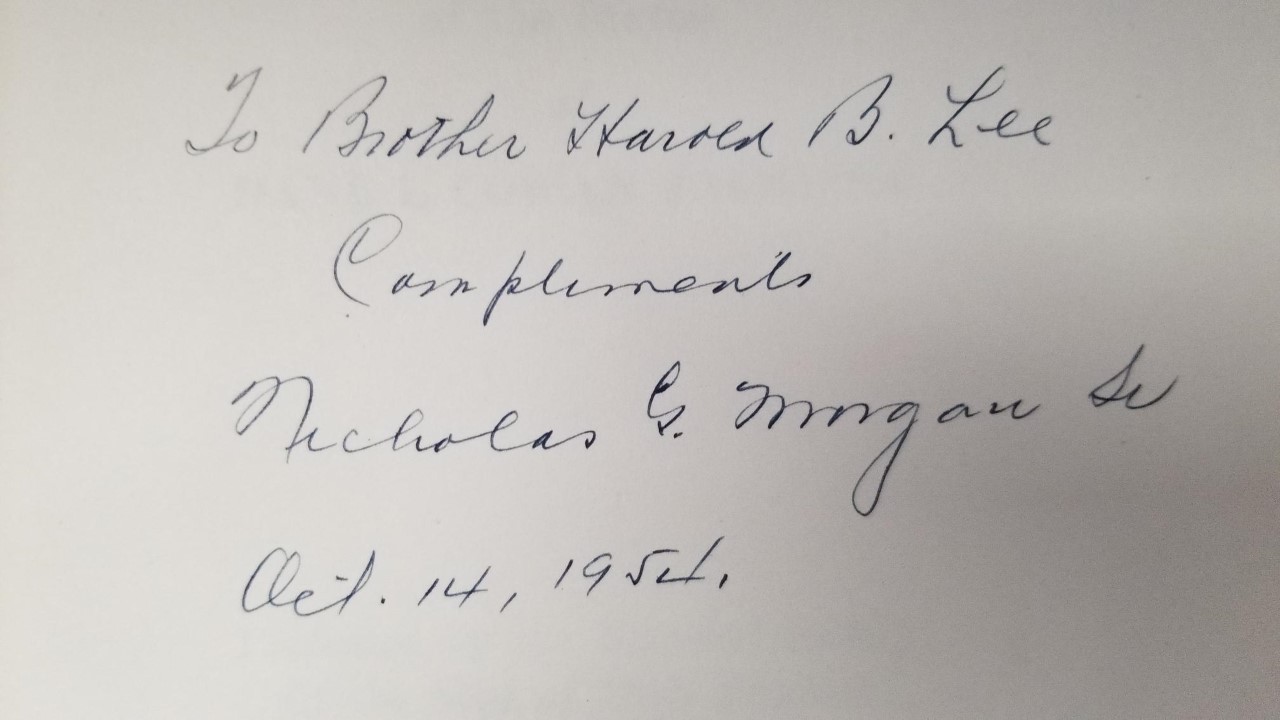 To Brother Harold B. Lee
Compliments
Nicholas G. Morgan Sr
Oct. 14, 1954.